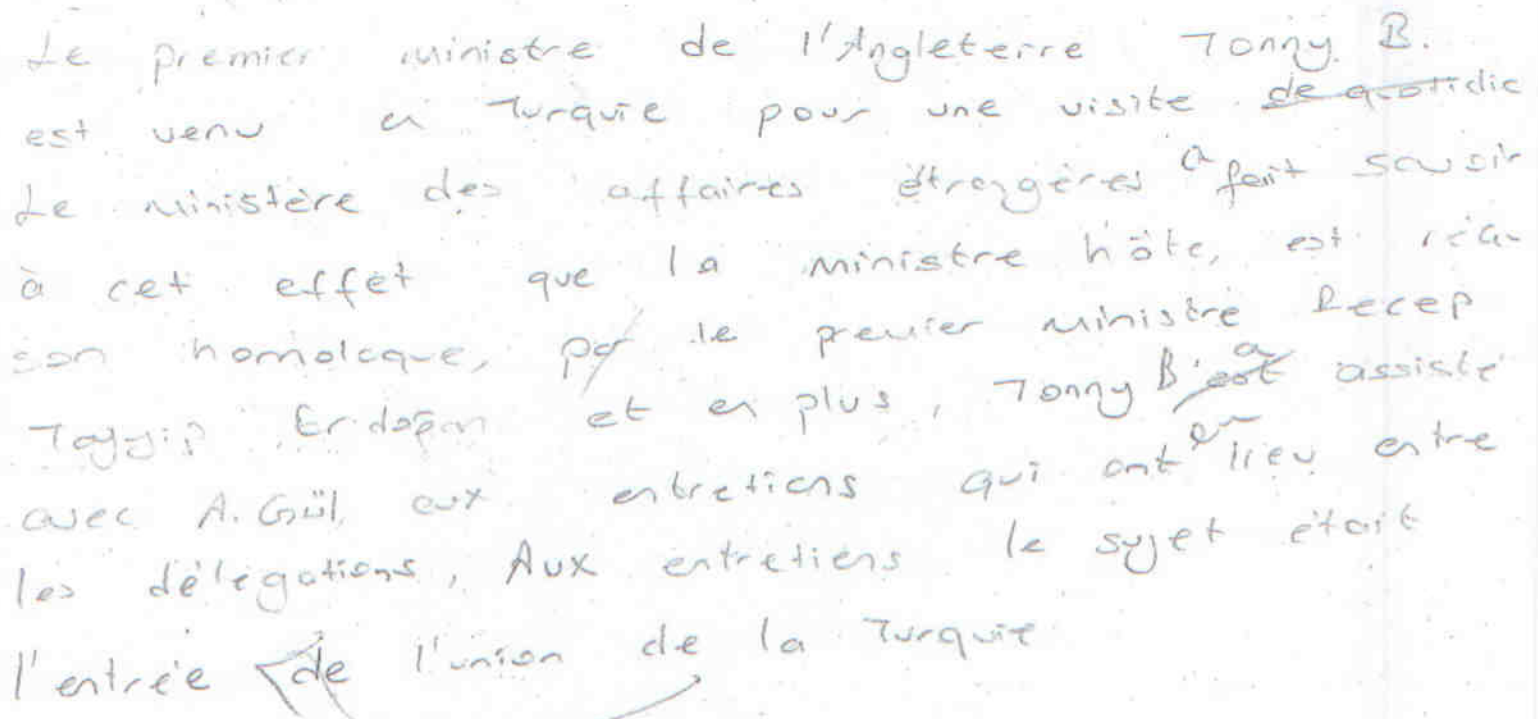 Le premier ministre de l'Angleterre Tonny B.
est venu en Turquie pour une visite de quotidie
Le ministère des affaires étrangères a fait savoir
à cet effet que la ministre hôte, est
son homologue, par le premier ministre Recep
Tayyip Erdoğan et en plus, Tonny B. est a assisté
avec A. Gül, aux entretiens qui ont eu lieu entre
les délégations, Aux entretiens le sujet était
l'entrée de l'union de la Turquie